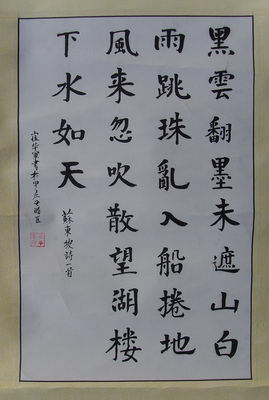 黑雲翻墨未遮山白
雨跳珠亂入船捲地
風来忽吹散望湖楼
下水如天
蘇東坡詩一首